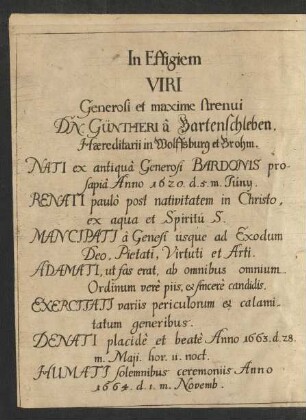 In Effigiem
VIRI
Generosi et maxime strenui
DN. GÜNTHERI â Bartenschleben.
Hæreditarii in Wolffsburg et Brohm.
NATI ex antiquâ Generosi BARDONIS pro-
sapiâ Anno 1620. d. 5. m. Iūny.
RENATI paulò post nativitatem in Christo,
ex aqua et Spiritū S.
MANCIPATI â Genesi usque ad Exodum
Deo, Pietati, Virtuti et Arti.
ADAMATI, ut fas erat, ab omnibus omnium
Ordinum verè piis, et sincerè candidis.
EXERCITATI variis periculorum et calami-
tatum generibus.
DENATI placidè et beatè Anno 1663. d. 28.
m. Maji. hor. 11. noct.
HUMATI solemnibus ceremoniis Anno
1664. d. 1. m. Novemb.